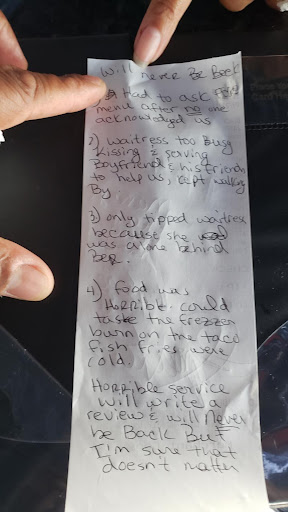 Will never Be Back
1) Had to ask for
menu after no one
acknowledged us
2) waitress too Busy
Kissing & serving
Boyfriend & his friends
to help us, Kept walking
By
3) only tipped waitress
because she
was alone behind
Bar.
4) Food was
Horrible. Could
taste the frezzer
burn on the taco
fish fries were
cold.
Horrible service
will write a
review & will never
be Back But
I'm sure that
doesn't matter